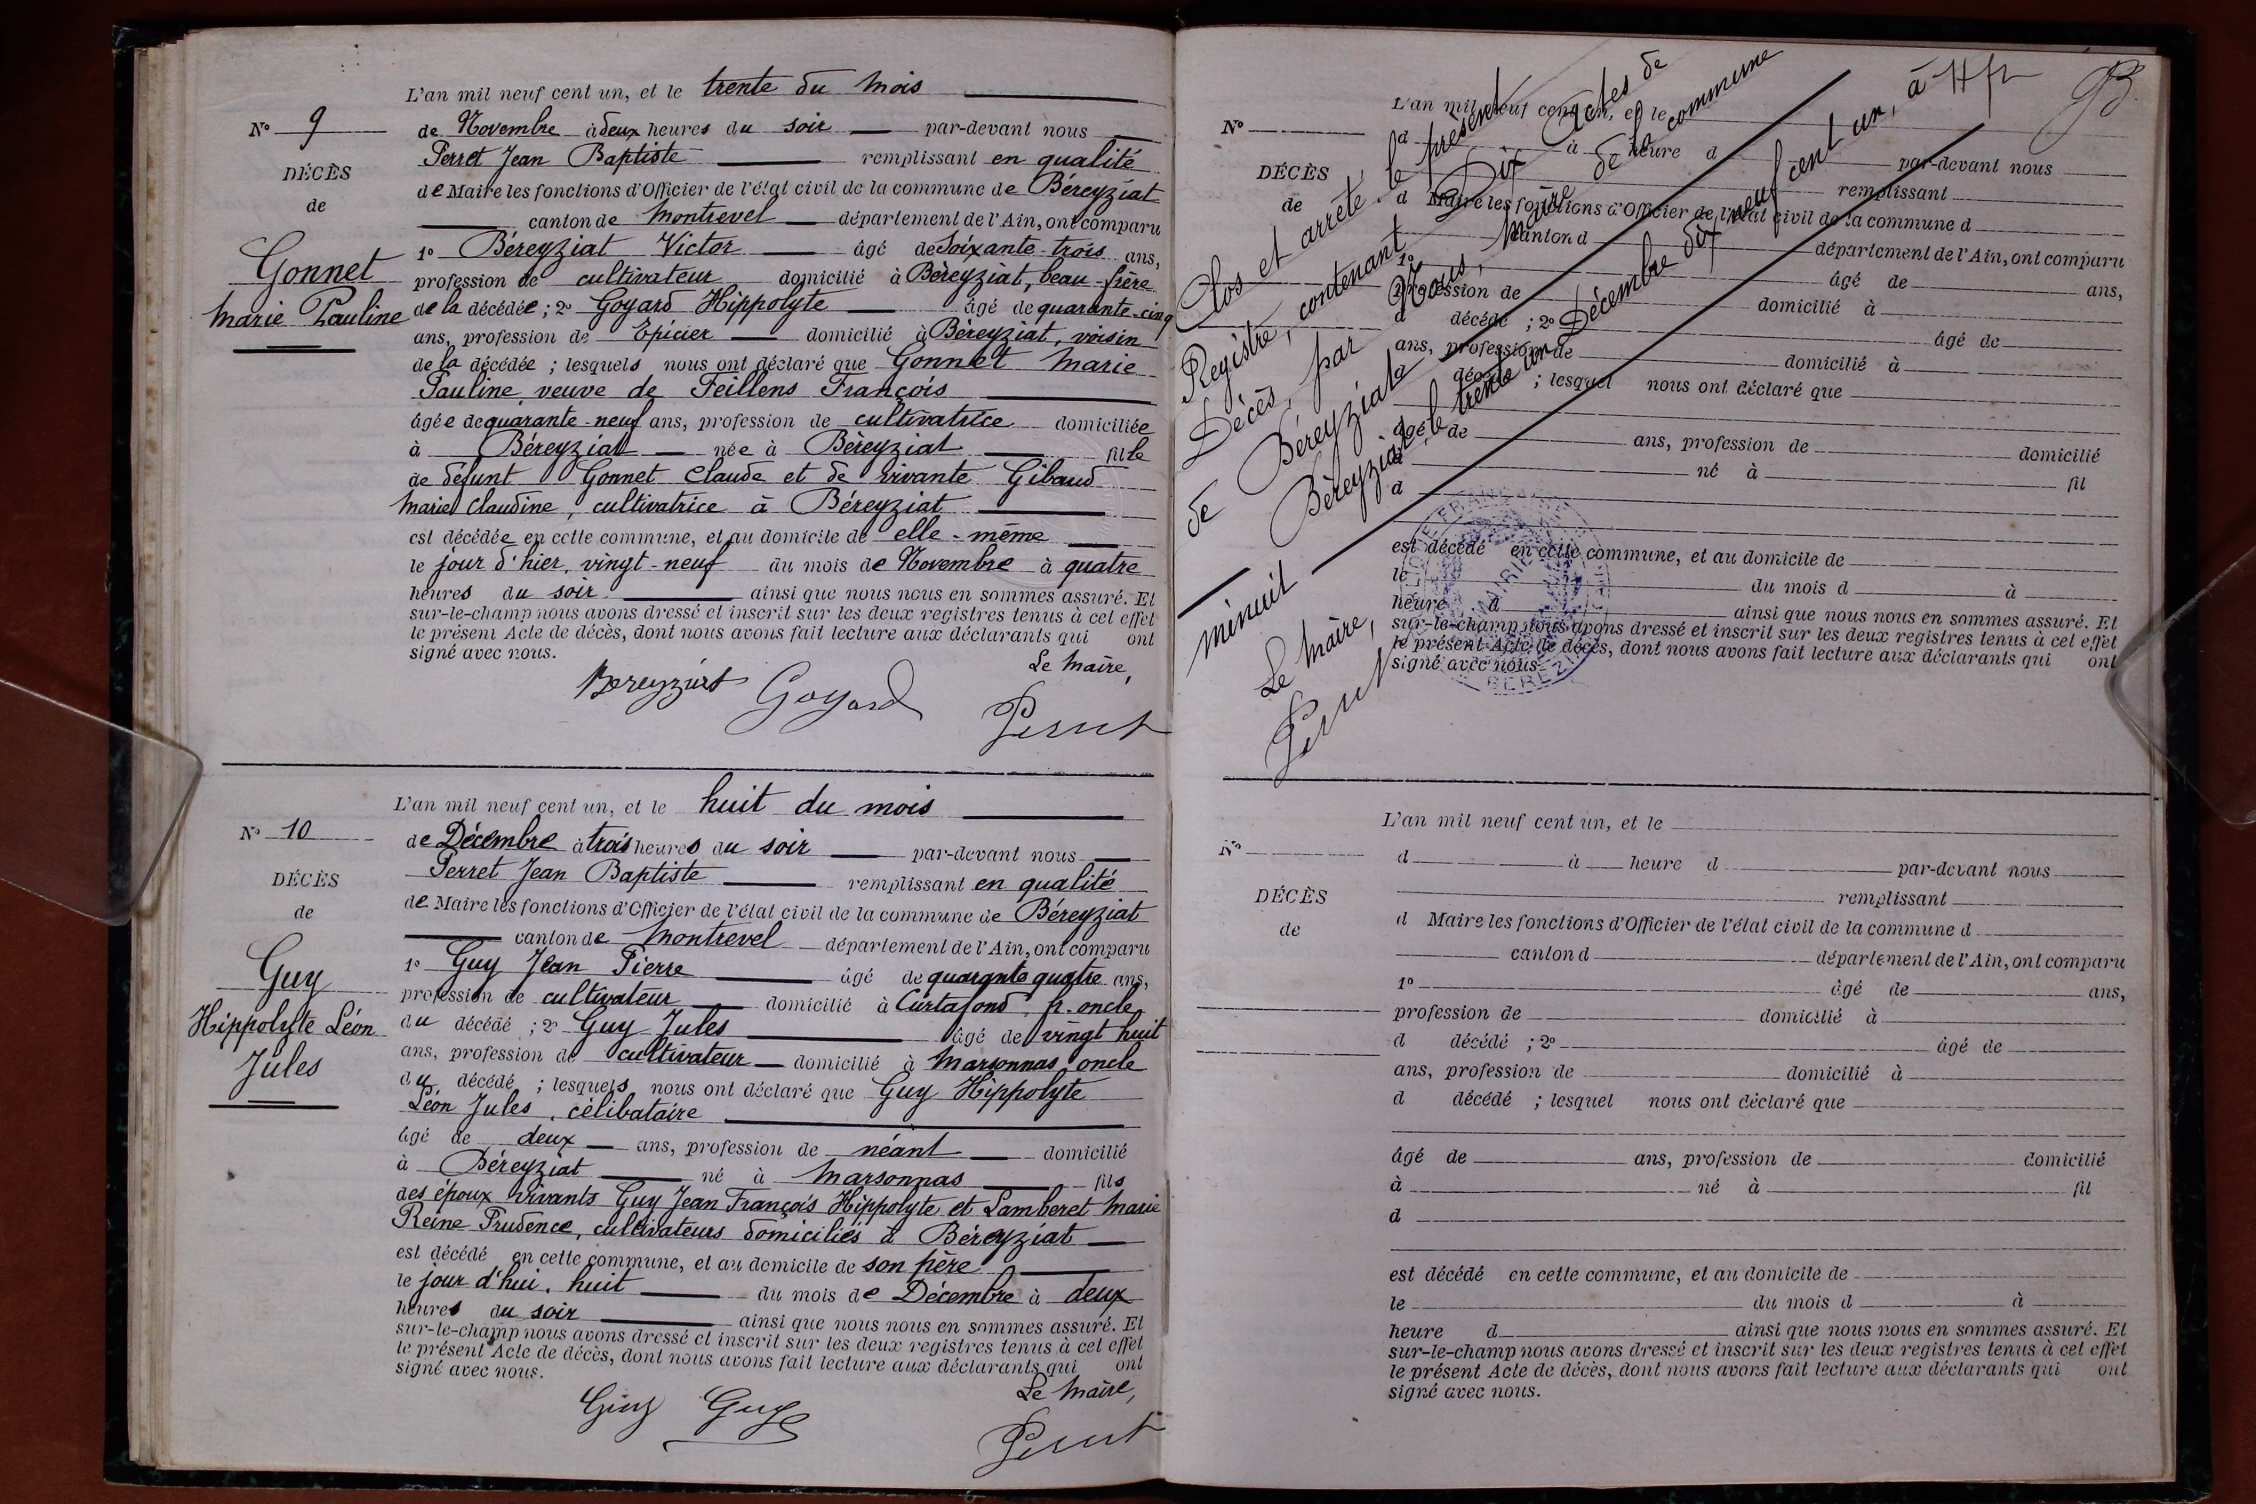 L'an mil neuf cent un, et le trente du mois
N° 9
de Novembre à deux heures du soir par-devant nous
DÉCÈS
Perret Jean Baptiste remplissant en qualité
de
de Maire les fonctions d'Officier de l'état civil de la commune de Béreyziat
canton de Montrevel département de l'Ain, ont comparu
Gonnet
1° Béreyziat Victor âgé de soixante-trois ans,
profession de cultivateur domicilié à Béreyziat, beau-frère
Marie Pauline
de la décédée ; 2° Goyard Hippolyte âgé de quarante-cinq
ans, profession de Epicier domicilié à Béreyziat, voisin
de la décédée ; lesquels nous ont déclaré que Gonnet Marie
Pauline, veuve de Feillens François
âgée de quarante-neuf ans, profession de cultivatrice domiciliée
à Béreyziat née à Béreyziat fille
de défunt Gonnet Claude et de vivante Gibaud
Marie Claudine, cultivatrice à Béreyziat
est décédée en cette commune, et au domicile de elle-même
le jour d'hier, vingt-neuf du mois de Novembre à quatre
heures du soir ainsi que nous nous en sommes assuré. Et
sur-le-champ nous avons dressé et inscrit sur les deux registres tenus à cet effet
le présent Acte de décès, dont nous avons fait lecture aux déclarants qui ont
signé avec nous.
Le Maire,
Béreyziat Goyard Perret
L'an mil neuf cent un, et le huit du mois
N° 10
de Décembre à trois heures du soir par-devant nous
DÉCÈS
Perret Jean Baptiste remplissant en qualité
de
de Maire les fonctions d'Officier de l'état civil de la commune de Béreyziat
canton de Montrevel département de l'Ain, ont comparu
Guy
1° Guy Jean Pierre âgé de quarante quatre ans,
profession de cultivateur domicilié à Curtafond, gr. oncle
Hippolyte Léon
du décédé ; 2° Guy Jules âgé de vingt huit
Jules
ans, profession de cultivateur domicilié à Marsonnas oncle
du décédé ; lesquels nous ont déclaré que Guy Hippolyte
Léon Jules, célibataire
âgé de deux ans, profession de néant domicilié
à Béreyziat né à Marsonnas fils
des époux vivants Guy Jean François Hippolyte et Lamberet Marie
Reine Prudence, cultivateurs domiciliés à Béreyziat
est décédé en cette commune, et au domicile de son père
le jour d'hui, huit du mois de Décembre à deux
heures du soir ainsi que nous nous en sommes assuré. Et
sur-le-champ nous avons dressé et inscrit sur les deux registres tenus à cet effet
le présent Acte de décès, dont nous avons fait lecture aux déclarants qui ont
signé avec nous.
Le Maire,
Guy Guy Perret
L'an mil neuf cent un, et le
N°
d à heure d par-devant nous
DÉCÈS
remplissant
de
d Maire les fonctions d'Officier de l'état civil de la commune d
canton d département de l'Ain, ont comparu
1° âgé de ans,
profession de domicilié à
d décédé ; 2° âgé de
ans, profession de domicilié à
d décédé ; lesquel nous ont déclaré que
âgé de ans, profession de domicilié
à né à fil
d
est décédé en cette commune, et au domicile de
le du mois d à
heure d ainsi que nous nous en sommes assuré. Et
sur-le-champ nous avons dressé et inscrit sur les deux registres tenus à cet effet
le présent Acte de décès, dont nous avons fait lecture aux déclarants qui ont
signé avec nous.
Clos et arrêté le présent
Registre, contenant Dix Actes de
Décès, par Nous, Maire de la commune
de Béreyziat
Béreyziat, le trente un Décembre dix neuf cent un, à
minuit
Le Maire,
Perret
MAIRIE
L'an mil neuf cent un, et le
N°
d à heure d par-devant nous
DÉCÈS
remplissant
de
d Maire les fonctions d'Officier de l'état civil de la commune d
canton d département de l'Ain, ont comparu
1° âgé de ans,
profession de domicilié à
d décédé ; 2° âgé de
ans, profession de domicilié à
d décédé ; lesquel nous ont déclaré que
âgé de ans, profession de domicilié
à né à fil
d
est décédé en cette commune, et au domicile de
le du mois d à
heure d ainsi que nous nous en sommes assuré. Et
sur-le-champ nous avons dressé et inscrit sur les deux registres tenus à cet effet
le présent Acte de décès, dont nous avons fait lecture aux déclarants qui ont
signé avec nous.